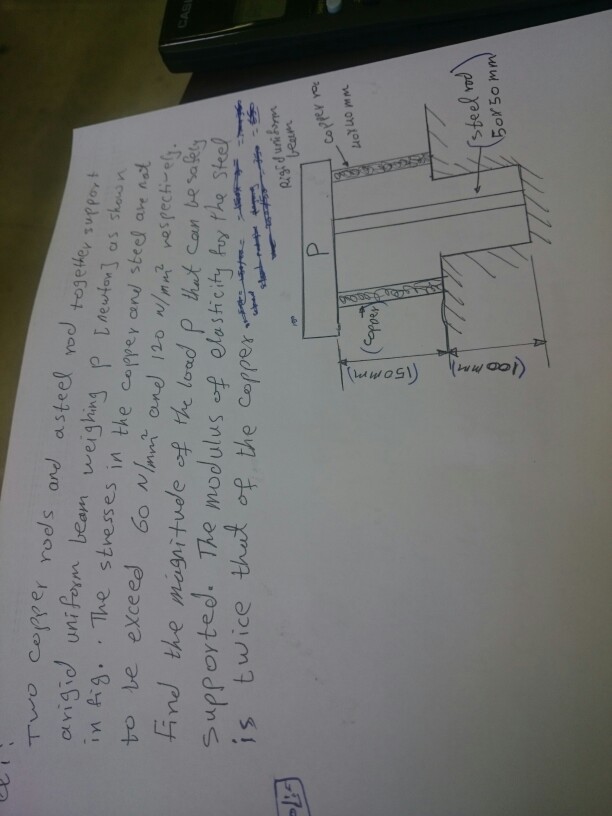 CASIO
Two copper rods and a steel rod together support
arigid uniform beam weighing P [Newton] as shown
in fig. . The stresses in the copper and steel are not
to be exceed 60 N/mm² and 120 N/mm² respectively.
Find the magnitude of the load P that can be safely
supported. The modulus of elasticity for the steel
is twice that of the copper
Rigid uniform
beam
copper ro
40x40mm
(steel rod)
50x50 mm
P
(copper)
(150mm)
(100mm)